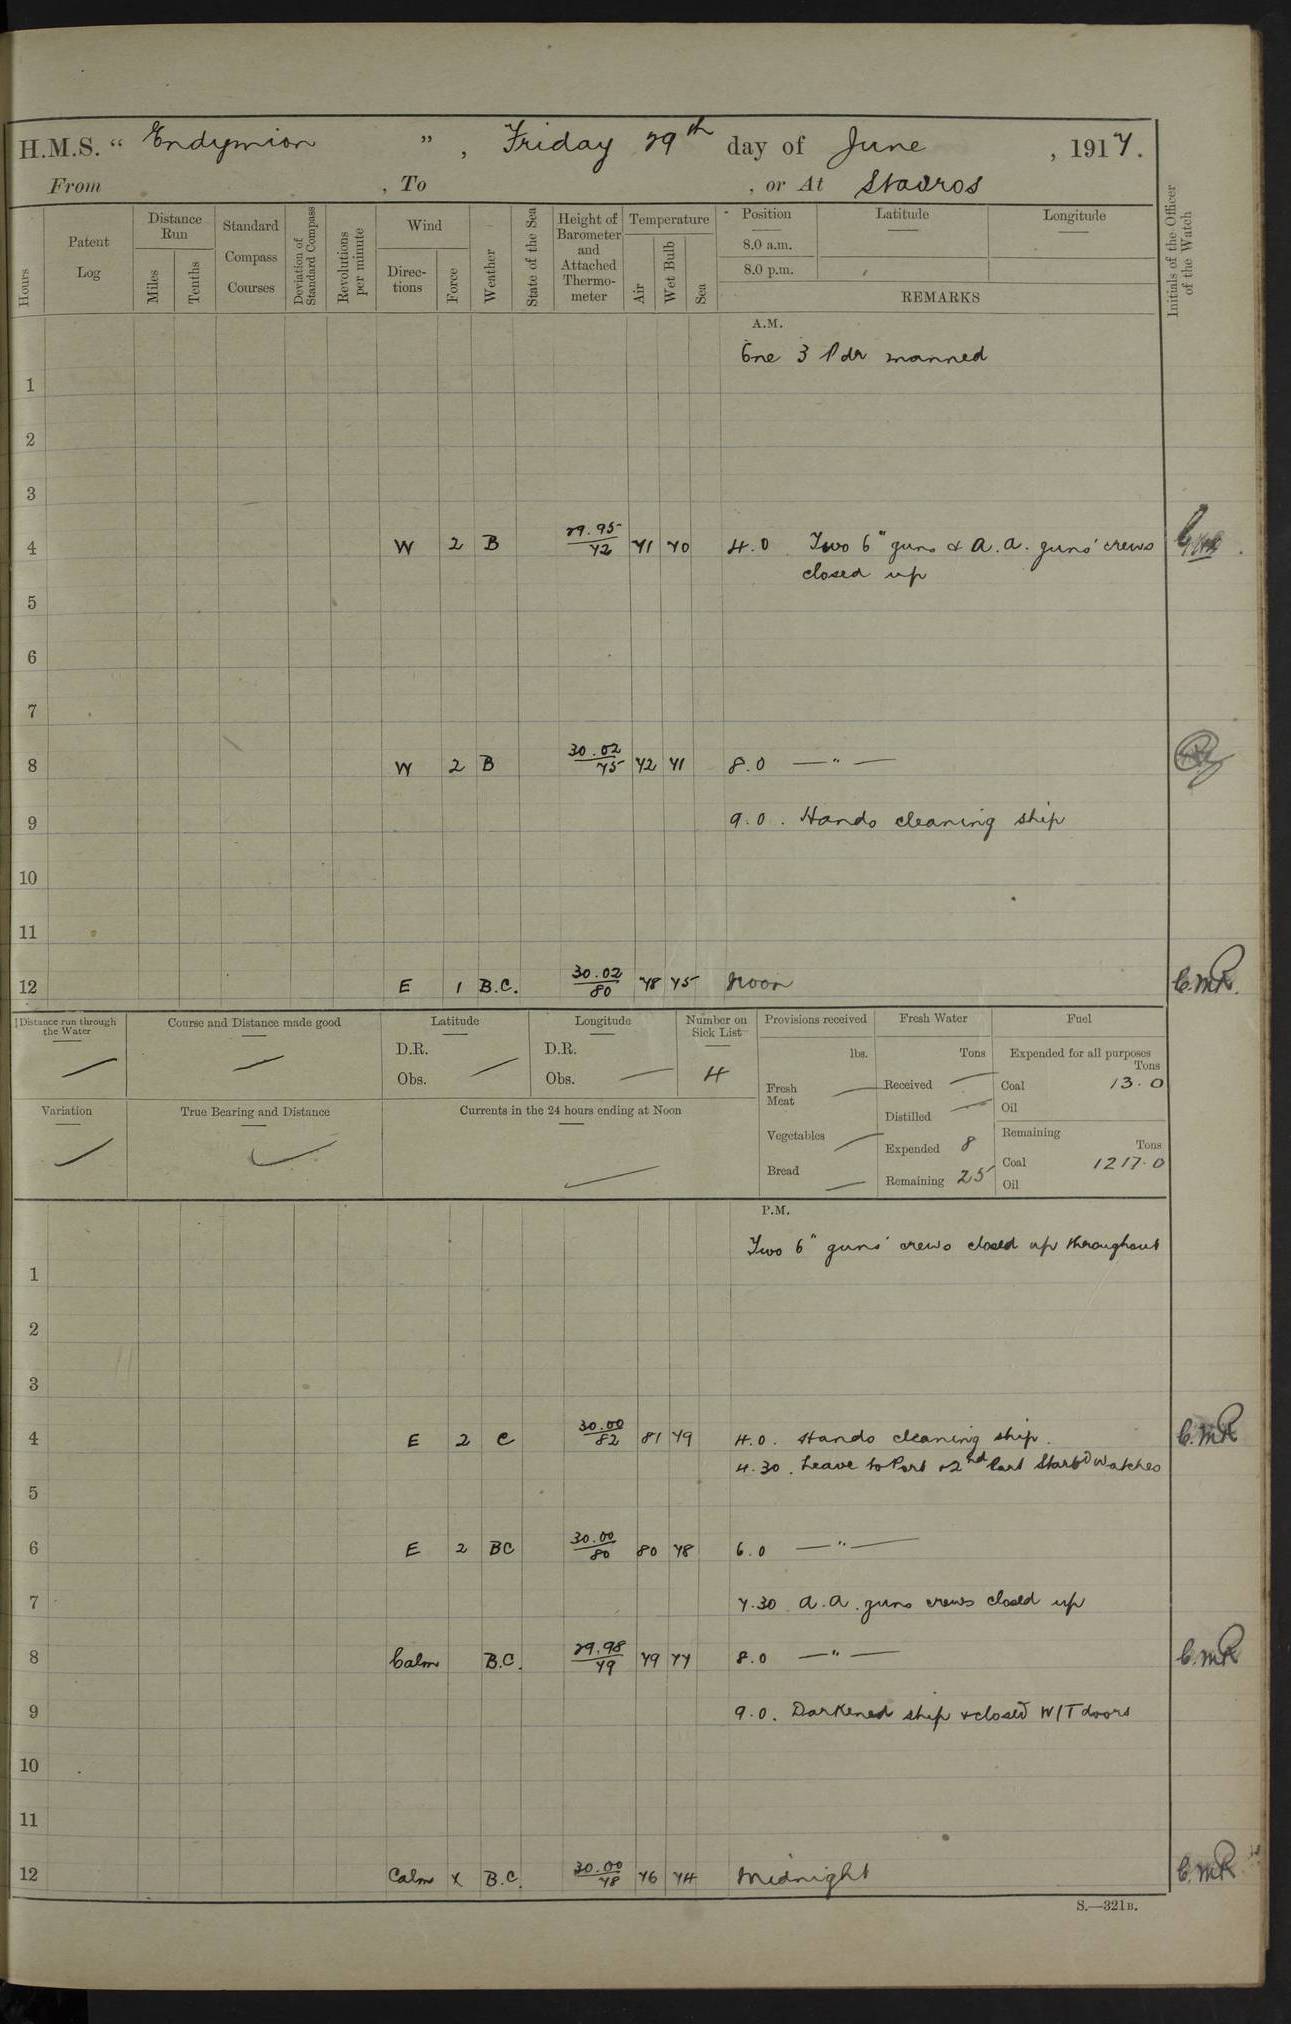 H.M.S. “ Endymion ” , Friday 29th day of June , 1917.
From , To , or At Stavros
Hours
Patent Log
Distance Run
Miles
Tenths
Standard Compass Courses
Deviation of Standard Compass
Revolutions per minute
Wind
Direc-tions
Force
Weather
State of the Sea
Height of Barometer and Attached Thermo-meter
Temperature
Air
Wet Bulb
Sea
Position
8.0 a.m.
8.0 p.m.
Latitude
Longitude
REMARKS
Initials of the Officer of the Watch
A.M.
One 3 Pdr manned
1
2
3
4 W 2 B 29.95 72 71 70 4.0 Two 6" guns & A.A. guns' crews
closed up
5
6
7
8 W 2 B 30.02 75 72 71 8.0 — " —
9 9.0. Hands cleaning ship
10
11
12 E 1 B.C. 30.02 80 78 75 Noon C.M.R.
Distance run through the Water
Course and Distance made good
Latitude
D.R.
Obs.
Longitude
D.R.
Obs.
Number on Sick List
4
Provisions received
lbs.
Fresh Meat
Vegetables
Bread
Fresh Water
Tons
Received
Distilled
Expended 8
Remaining 25
Fuel
Expended for all purposes
Tons
Coal 13.0
Oil
Remaining
Tons
Coal 1217.0
Oil
Variation
True Bearing and Distance
Currents in the 24 hours ending at Noon
P.M.
Two 6" guns' crews closed up throughout
1
2
3
4 E 2 C 30.00 82 81 79 4.0. Hands cleaning ship. C.M.R.
4.30. Leave to Port & 2nd Part Starbd Watches
5
6 E 2 BC 30.00 80 80 78 6.0 — " —
7 7.30 A.A. guns crews closed up
8 Calm B.C. 29.98 79 79 77 8.0 — " — C.M.R.
9 9.0. Darkened ship & closed W/T doors
10
11
12 Calm x B.C. 30.00 78 76 74 Midnight C.M.R.
S.—321B.